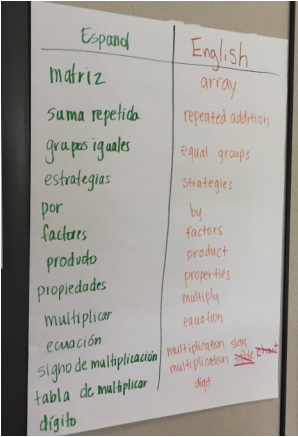 Español English
matriz array
suma repetida repeated addition
grupos iguales equal groups
estrategias strategies
por by
factores factors
producto product
propiedades properties
multiplicar multiply
ecuación equation
signo de multiplicación multiplication sign
tabla de multiplicar multiplication chart
dígito digit